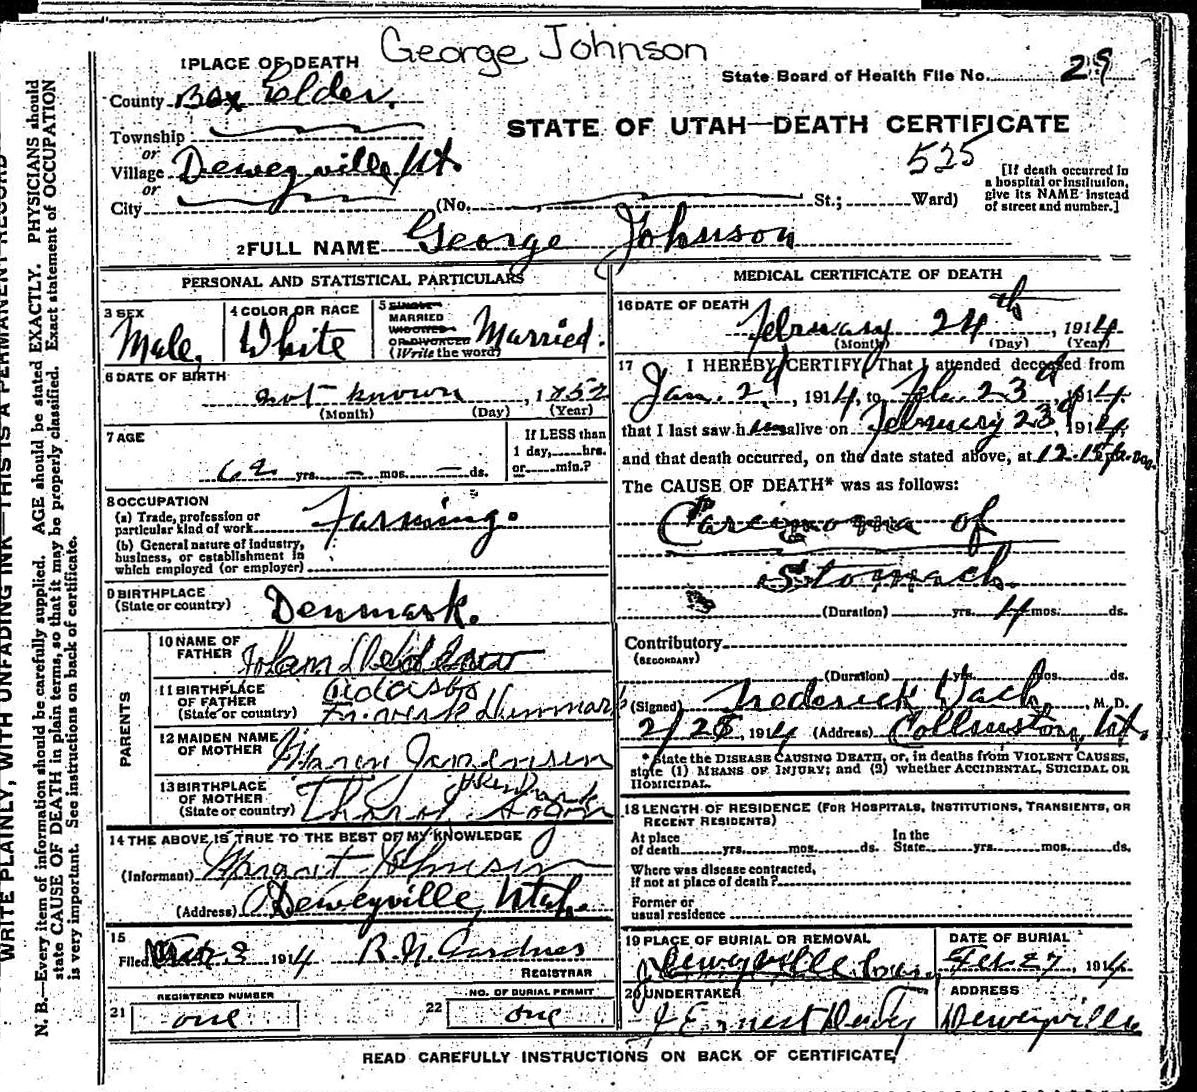 George Johnson
1 PLACE OF DEATH
State Board of Health File No. 29
County Box Elder.
STATE OF UTAH—DEATH CERTIFICATE
Township
525
or
Village Deweyville, Ut.
or
[If death occurred in
a hospital or institution,
give its NAME instead
of street and number.]
City (No. St.; Ward)
2 FULL NAME George Johnson
PERSONAL AND STATISTICAL PARTICULARS
3 SEX
Male.
4 COLOR OR RACE
White
5 SINGLE
MARRIED
WIDOWED
OR DIVORCED
(Write the word)
Married.
6 DATE OF BIRTH
not known, 1852
(Month) (Day) (Year)
7 AGE
62 yrs. — mos. — ds.
If LESS than
1 day, hrs.
or min.?
8 OCCUPATION
(a) Trade, profession or
particular kind of work Farming.
(b) General nature of industry,
business, or establishment in
which employed (or employer)
9 BIRTHPLACE
(State or country) Denmark.
PARENTS
10 NAME OF
FATHER
11 BIRTHPLACE
OF FATHER
(State or country)
12 MAIDEN NAME
OF MOTHER
13 BIRTHPLACE
OF MOTHER
(State or country)
14 THE ABOVE IS TRUE TO THE BEST OF MY KNOWLEDGE
(Informant) Margaret Johnson
(Address) Deweyville, Utah.
15
Filed 3 1914 R. N. Gardner
REGISTRAR
REGISTERED NUMBER
21 one
NO. OF BURIAL PERMIT
22 one
MEDICAL CERTIFICATE OF DEATH
16 DATE OF DEATH
February 24th, 1914
(Month) (Day) (Year)
17 I HEREBY CERTIFY That I attended deceased from
Jan. 2d, 1914, to Feb. 23d, 1914,
that I last saw him alive on February 23d, 1914,
and that death occurred, on the date stated above, at 12.15
The CAUSE OF DEATH* was as follows:
Carcinoma of
Stomach.
(Duration) yrs. 4 mos. ds.
Contributory
(SECONDARY)
(Duration) yrs. mos. ds.
(Signed) Frederick Wach, M. D.
2/25, 1914 (Address) Collinston, Ut.
* State the DISEASE CAUSING DEATH, or, in deaths from VIOLENT CAUSES,
state (1) MEANS OF INJURY; and (2) whether ACCIDENTAL, SUICIDAL OR
HOMICIDAL.
18 LENGTH OF RESIDENCE (FOR HOSPITALS, INSTITUTIONS, TRANSIENTS, OR
RECENT RESIDENTS)
At place
of death yrs. mos. ds.
In the
State yrs. mos. ds.
Where was disease contracted,
if not at place of death?
Former or
usual residence
19 PLACE OF BURIAL OR REMOVAL
Deweyville
DATE OF BURIAL
Feb. 27, 1914
20 UNDERTAKER
J Ernest Dewey
ADDRESS
Deweyville
READ CAREFULLY INSTRUCTIONS ON BACK OF CERTIFICATE
WRITE PLAINLY, WITH UNFADING INK—THIS IS A PERMANENT RECORD
N. B.—Every item of information should be carefully supplied. AGE should be stated EXACTLY. PHYSICIANS should
state CAUSE OF DEATH in plain terms, so that it may be properly classified. Exact statement of OCCUPATION
is very important. See instructions on back of certificate.